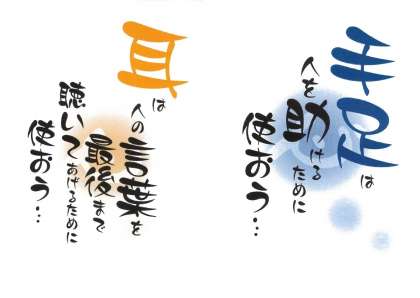 手足は
人を助ける
ために
使おう…
耳は
人の言葉を
最後まで
聴いてあげるために
使おう…